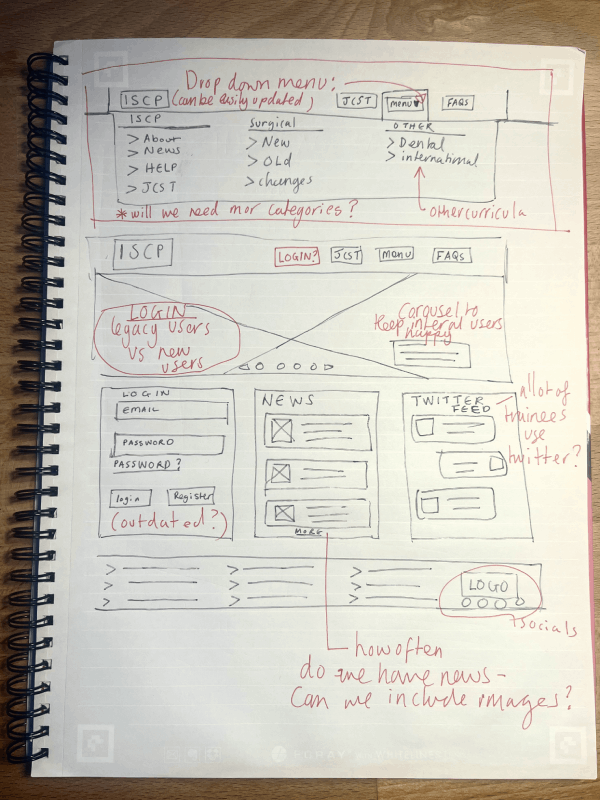 Drop down menu:
ISCP (can be easily updated) JCST MENU FAQS
ISCP Surgical OTHER
> About > New > Dental
> News > OLd > international
> HELP > changes
> JCST
*will we need mor categories? other curricula
ISCP LOGIN? JCST MENU FAQs
LOGIN
legacy users
vs new
users
Carousel to
Keep interal users
happy
LOGIN
EMAIL
PASSWORD
PASSWORD?
login Register
(outdated?)
NEWS
MORE
TWITTER
FEED
Allot of
trainees
use
twitter?
LOGO
+socials
how often
do we have news -
Can we include images?